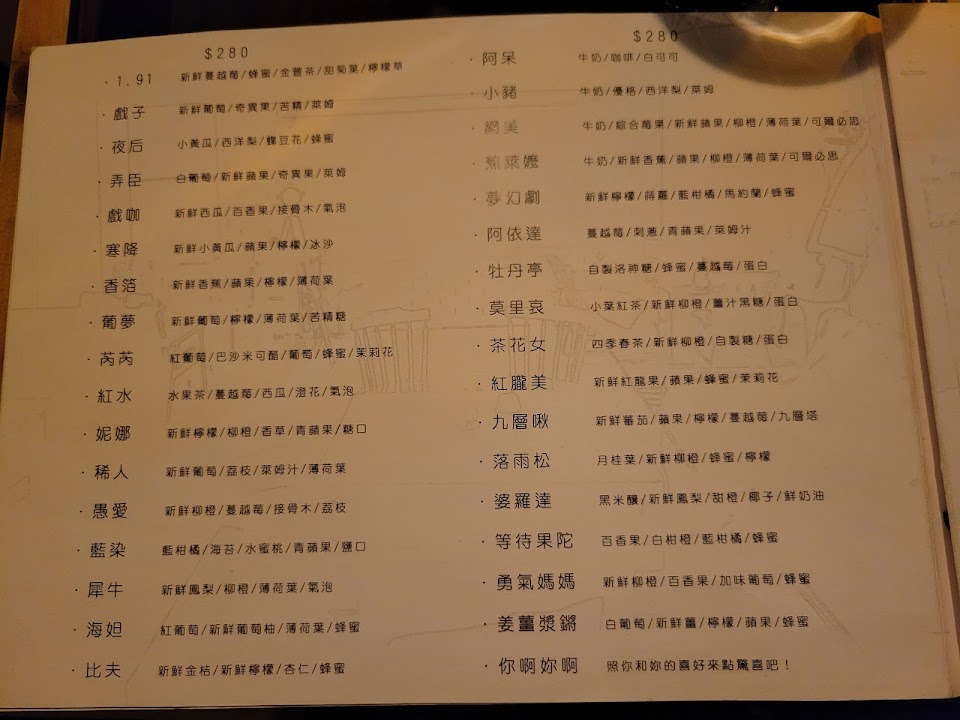 $280
· 1.91 新鮮蔓越莓/蜂蜜/金萱茶/甜菊葉/檸檬草
· 戲子 新鮮葡萄/奇異果/苦精/萊姆
· 夜后 小黃瓜/西洋梨/蝶豆花/蜂蜜
· 弄臣 白葡萄/新鮮蘋果/奇異果/萊姆
· 戲咖 新鮮西瓜/百香果/接骨木/氣泡
· 寒降 新鮮小黃瓜/蘋果/檸檬/冰沙
· 香箔 新鮮香蕉/蘋果/檸檬/薄荷葉
· 葡夢 新鮮葡萄/檸檬/薄荷葉/苦精糖
· 芮芮 紅葡萄/巴沙米可醋/葡萄/蜂蜜/茉莉花
· 紅水 水果茶/蔓越莓/西瓜/澄花/氣泡
· 妮娜 新鮮檸檬/柳橙/香草/青蘋果/糖口
· 稀人 新鮮葡萄/荔枝/萊姆汁/薄荷葉
· 愚愛 新鮮柳橙/蔓越莓/接骨木/荔枝
· 藍染 藍柑橘/海苔/水蜜桃/青蘋果/鹽口
· 犀牛 新鮮鳳梨/柳橙/薄荷葉/氣泡
· 海妲 紅葡萄/新鮮葡萄柚/薄荷葉/蜂蜜
· 比夫 新鮮金桔/新鮮檸檬/杏仁/蜂蜜
$280
· 阿呆 牛奶/咖啡/白可可
· 小豬 牛奶/優格/西洋梨/萊姆
· 綢美 牛奶/綜合莓果/新鮮蘋果/柳橙/薄荷葉/可爾必思
· 蕉萊嬤 牛奶/新鮮香蕉/蘋果/柳橙/薄荷葉/可爾必思
· 夢幻劇 新鮮檸檬/蒔蘿/藍柑橘/馬約蘭/蜂蜜
· 阿依達 蔓越莓/刺蔥/青蘋果/萊姆汁
· 牡丹亭 自製洛神糖/蜂蜜/蔓越莓/蛋白
· 莫里哀 小葉紅茶/新鮮柳橙/薑汁黑糖/蛋白
· 茶花女 四季春茶/新鮮柳橙/自製糖/蛋白
· 紅朧美 新鮮紅龍果/蘋果/蜂蜜/茉莉花
· 九層啾 新鮮蕃茄/蘋果/檸檬/蔓越莓/九層塔
· 落雨松 月桂葉/新鮮柳橙/蜂蜜/檸檬
· 婆羅達 黑米釀/新鮮鳳梨/甜橙/椰子/鮮奶油
· 等待果陀 百香果/白柑橙/藍柑橘/蜂蜜
· 勇氣媽媽 新鮮柳橙/百香果/加味葡萄/蜂蜜
· 姜薑漿鏘 白葡萄/新鮮薑/檸檬/蘋果/蜂蜜
· 你啊妳啊 照你和妳的喜好來點驚喜吧！